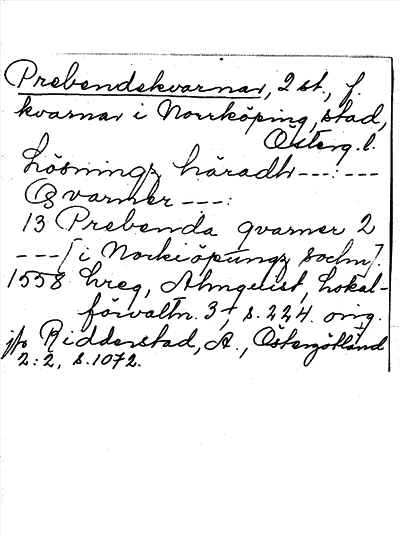 Prebendekvarnar, 2 st., f.
kvarnar i Norrköping, stad,
Österg. l.
Lösningz häradh ---:---
Qvarner ---:
13 Prebenda qvarner 2
---[i Norkiöpungz sochn].
1558 hreg, Almquist, Lokal-
förvaltn. 3, s. 224. orig.
jfr Ridderstad, A., Östergötland
2:2, s. 1072.